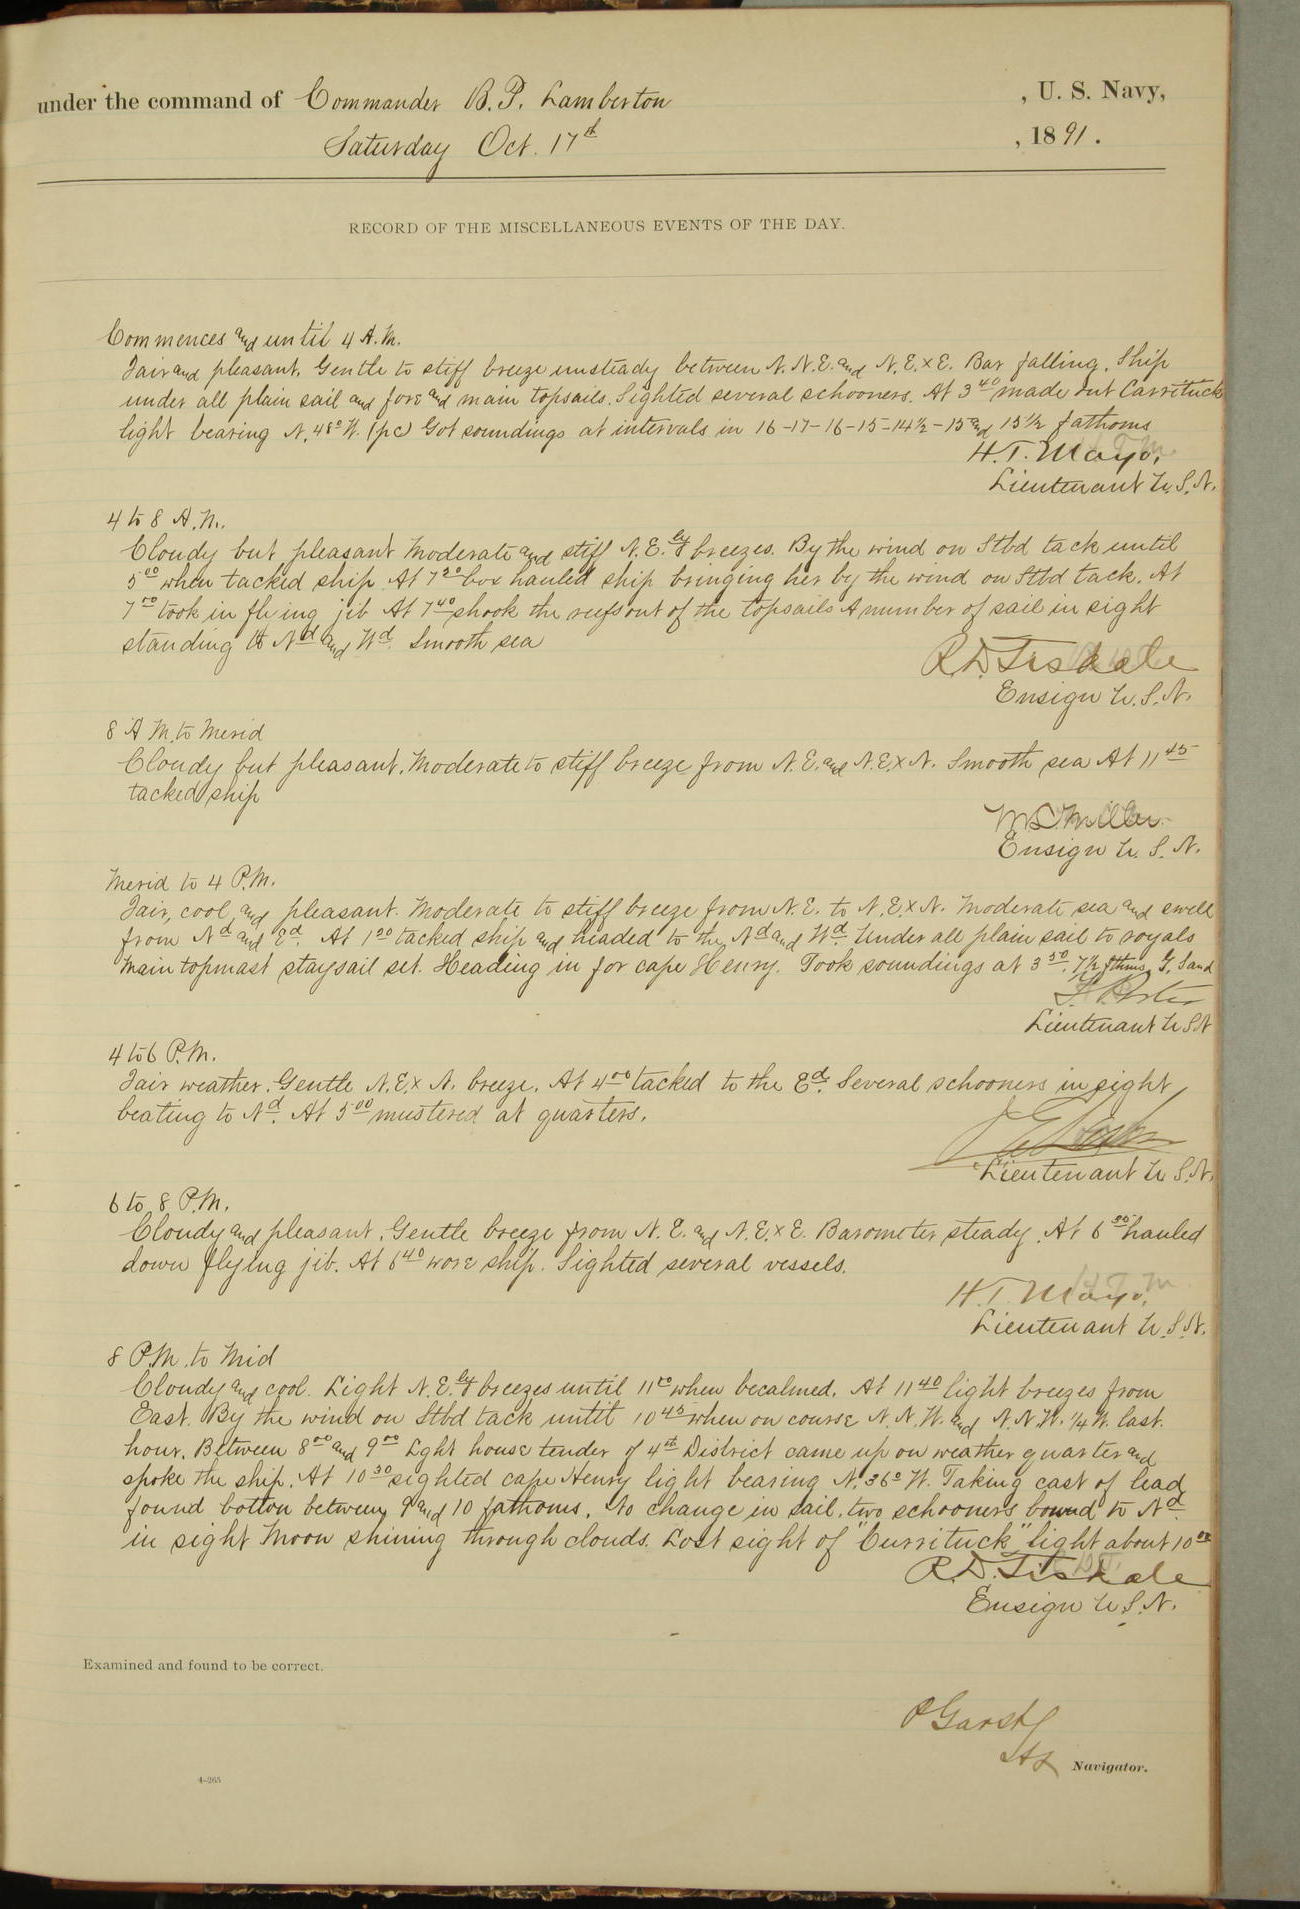 under the command of Commander B. P. Lamberton , U. S. Navy,
Saturday Oct. 17th , 1891.
RECORD OF THE MISCELLANEOUS EVENTS OF THE DAY.
Commences and until 4 A.M.
Fair and pleasant. Gentle to stiff breeze unsteady between N.N.E. and N.E.xE. Bar falling. Ship
under all plain sail and fore and main topsails. Sighted several schooners. At 3 40 made out Carrituck
light bearing N. 48° W. (pc) Got soundings at intervals in 16-17-16-15-14½-15 and 15½ fathoms
H. T. Mayo,
Lieutenant U.S.N.
4 to 8 A.M.
Cloudy but pleasant Moderate and stiff N.E.ly breezes. By the wind on Stbd tack until
5 00 when tacked ship. At 7 20 box hauled ship bringing her by the wind on Stbd tack. At
7 10 took in flying jib At 7 40 shook the reefs out of the topsails A number of sail in sight
standing to Nd and Wd. Smooth sea
R. D. Tisdale
Ensign U.S.N.
8 A.M. to Merid
Cloudy but pleasant. Moderate to stiff breeze from N.E. and N.E.xN. Smooth sea At 11 45
tacked ship
Miller
Ensign U.S.N.
Merid to 4 P.M.
Fair, cool and pleasant. Moderate to stiff breeze from N.E. to N.E.xN. Moderate sea and swell
from Nd and Ed. At 1 00 tacked ship and headed to the Nd and Wd. Under all plain sail to royals
Main topmast staysail set. Heading in for cape Henry. Took soundings at 3 50. 7½ fthms, G. Sand
Lieutenant U.S.N
4 to 6 P.M.
Fair weather. Gentle N.E.x N. breeze. At 4 00 tacked to the Ed. Several schooners in sight
beating to Nd. At 5 00 mustered at quarters.
Lieutenant U.S.N.
6 to 8 P.M.
Cloudy and pleasant. Gentle breeze from N.E. and N.E.xE. Barometer steady. At 6 hauled
down flying jib. At 6 40 wore ship. Sighted several vessels.
H. T. Mayo,
Lieutenant U.S.N.
8 P.M. to Mid
Cloudy and cool. Light N.E.ly breezes until 11 10 when becalmed. At 11 40 light breezes from
East. By the wind on Stbd tack until 10 45 when on course N.N.W. and N.N.W. ¼ W. last
hour. Between 8 00 and 9 00 Lght house tender of 4th District came up on weather quarter and
spoke the ship. At 10 30 sighted cape Henry light bearing N. 36° W. Taking cast of lead
found botton between 9 and 10 fathoms. No change in sail. two schooners bound to Nd
in sight Moon shining through clouds. Lost sight of "Currituck" light about 10 00
R. D. Tisdale
Ensign U.S.N.
Examined and found to be correct.
P Garst
Navigator.
4-265